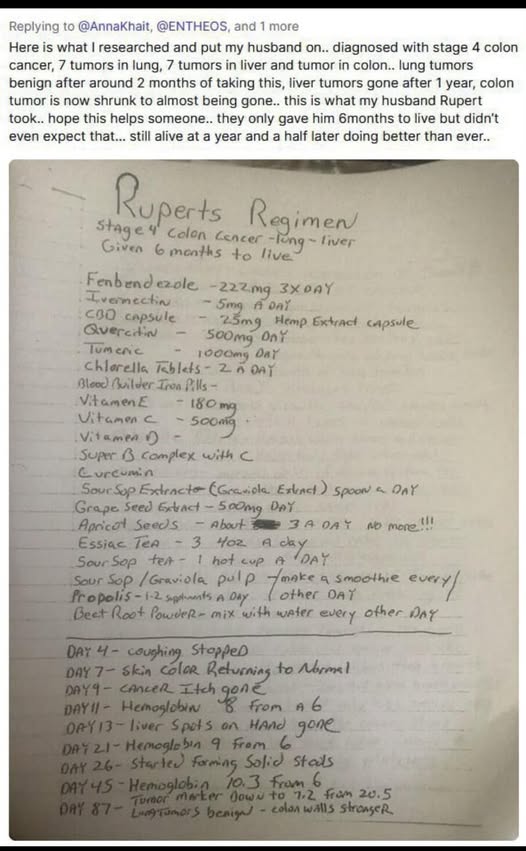 Replying to @AnnaKhait, @ENTHEOS, and 1 more
Here is what I researched and put my husband on.. diagnosed with stage 4 colon
cancer, 7 tumors in lung, 7 tumors in liver and tumor in colon.. lung tumors
benign after around 2 months of taking this, liver tumors gone after 1 year, colon
tumor is now shrunk to almost being gone.. this is what my husband Rupert
took.. hope this helps someone.. they only gave him 6months to live but didn't
even expect that... still alive at a year and a half later doing better than ever..
Ruperts Regimen
Stage 4 Colon Cancer - lung - liver
Given 6 months to live
Fenbendezole - 222mg 3X DAY
Ivermectin - 5mg A DAY
CBD capsule - 25mg Hemp Extract capsule
Quercitin - 500mg DAY
Tumeric - 1000mg DAY
Chlorella Tablets - 2 A DAY
Blood Builder Iron Pills -
Vitamen E - 180mg
Vitamen C - 500mg
Vitamen D -
Super B complex with C
Curcumin
Sour Sop Extract (Graviola Extract) spoon a DAY
Grape Seed Extract - 500mg DAY
Apricot Seeds - About 3 A DAY NO more!!!
Essiac Tea - 3 4oz A day
Sour Sop tea - 1 hot cup A DAY
Sour Sop / Graviola pulp / make a smoothie every /
Propolis - 1-2 A DAY / other DAY
Beet Root Powder - mix with water every other DAY
DAY 4 - coughing Stopped
DAY 7 - Skin Color Returning to Normal
DAY 9 - CANCER Itch gone
DAY 11 - Hemoglobin 8 from A 6
DAY 13 - liver Spots on HAND gone
DAY 21 - Hemoglobin 9 from 6
DAY 26 - Started forming Solid Stools
DAY 45 - Hemoglobin 10.3 from 6
Tumor marker Down to 7.2 from 20.5
DAY 87 - Lung Tumors benign - colon walls stronger